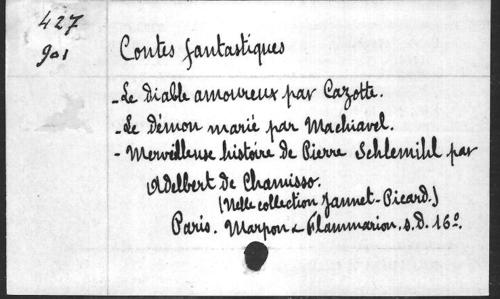 427
901
Contes fantastiques
- Le Diable amoureux par Cazotte.
- Le Démon marié par Machiavel.
- Merveilleuse histoire de Pierre Schlemihl par
Adelbert de Chamisso.
(Nelle collection Jannet-Picard.)
Paris. Marpon & Flammarion. s.d. 16º.